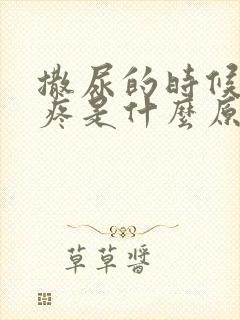 撒尿的時候
疼是什麼原
草草醬